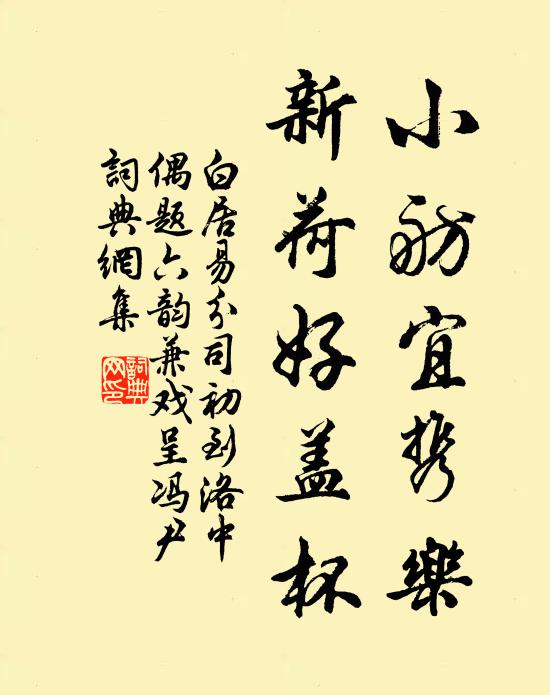 小舫宜携樂
新荷好盖杯
白居易分司初到洛中
偶题六韵兼戏呈冯尹
詞典網集
詞典網印